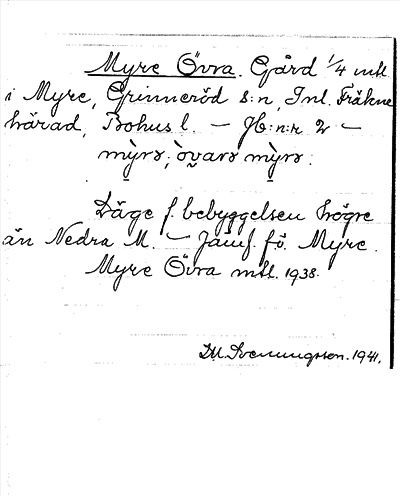 Myre Övra. Gård 1/4 mtl.
i Myre, Grinneröd s:n, Inl. Fräkne
härad, Bohusl. – Jb:n:r 2 –
mỳrə; òvarə mỳrə.
Läge f. bebyggelsen högre
än Nedra M. – Jämf. fö. Myre.
Myre Övra mtl. 1938.
M. Svenungsson. 1941.